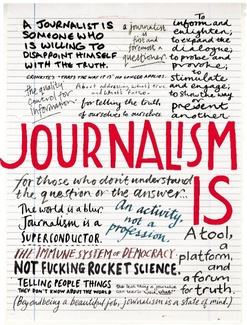 A JOURNALIST IS
SOMEONE WHO
IS WILLING TO
DISAPPOINT HIMSELF
WITH THE TRUTH.
a journalist
is first and
foremost a
questioner.
To
inform and
enlighten;
to expand the
dialogue;
to probe and
provoke;
to
stimulate
and engage;
to share the way
present
another
CRONKITE'S "THAT'S THE WAY IT IS" NO LONGER APPLIES.
the quality
control for
information
About addressing what's true
and what's false
for telling the truth
of ourselves to ourselves
JOURNALISM
IS
for those who don't understand
the question or the answer...
The world is a blur.
Journalism is a
SUPERCONDUCTOR.
An activity,
not a
profession.
THE IMMUNE SYSTEM OF DEMOCRACY.
NOT FUCKING ROCKET SCIENCE!
TELLING PEOPLE THINGS
THEY DON'T KNOW ABOUT THE WORLD
A tool,
a
platform,
and
a forum
for truth.
(Beyond being a beautiful job, journalism is a state of mind.)